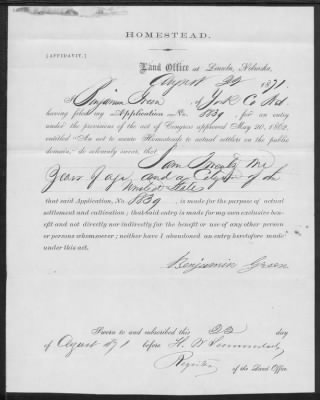 HOMESTEAD.
[AFFIDAVIT.]
Land Office at Lincoln, Nebraska,
August 22 1871.
I Benjamin Green of York Co Neb
having filed my Application No. 1839, for an entry
under the provisions of the act of Congress approved May 20, 1862,
entitled "An act to secure Homesteads to actual settlers on the public
domain," do solemnly swear, that I am Twenty one
Years of age and a Citizen of the
United States
that said Application, No. 1839, is made for the purpose of actual
settlement and cultivation; that said entry is made for my own exclusive bene-
fit and not directly nor indirectly for the benefit or use of any other person
or persons whomsoever; neither have I abandoned an entry heretofore made
under this act.
Benjamin Green
Sworn to and subscribed this 22 day
of August 1871 before
Register of the Land Office.